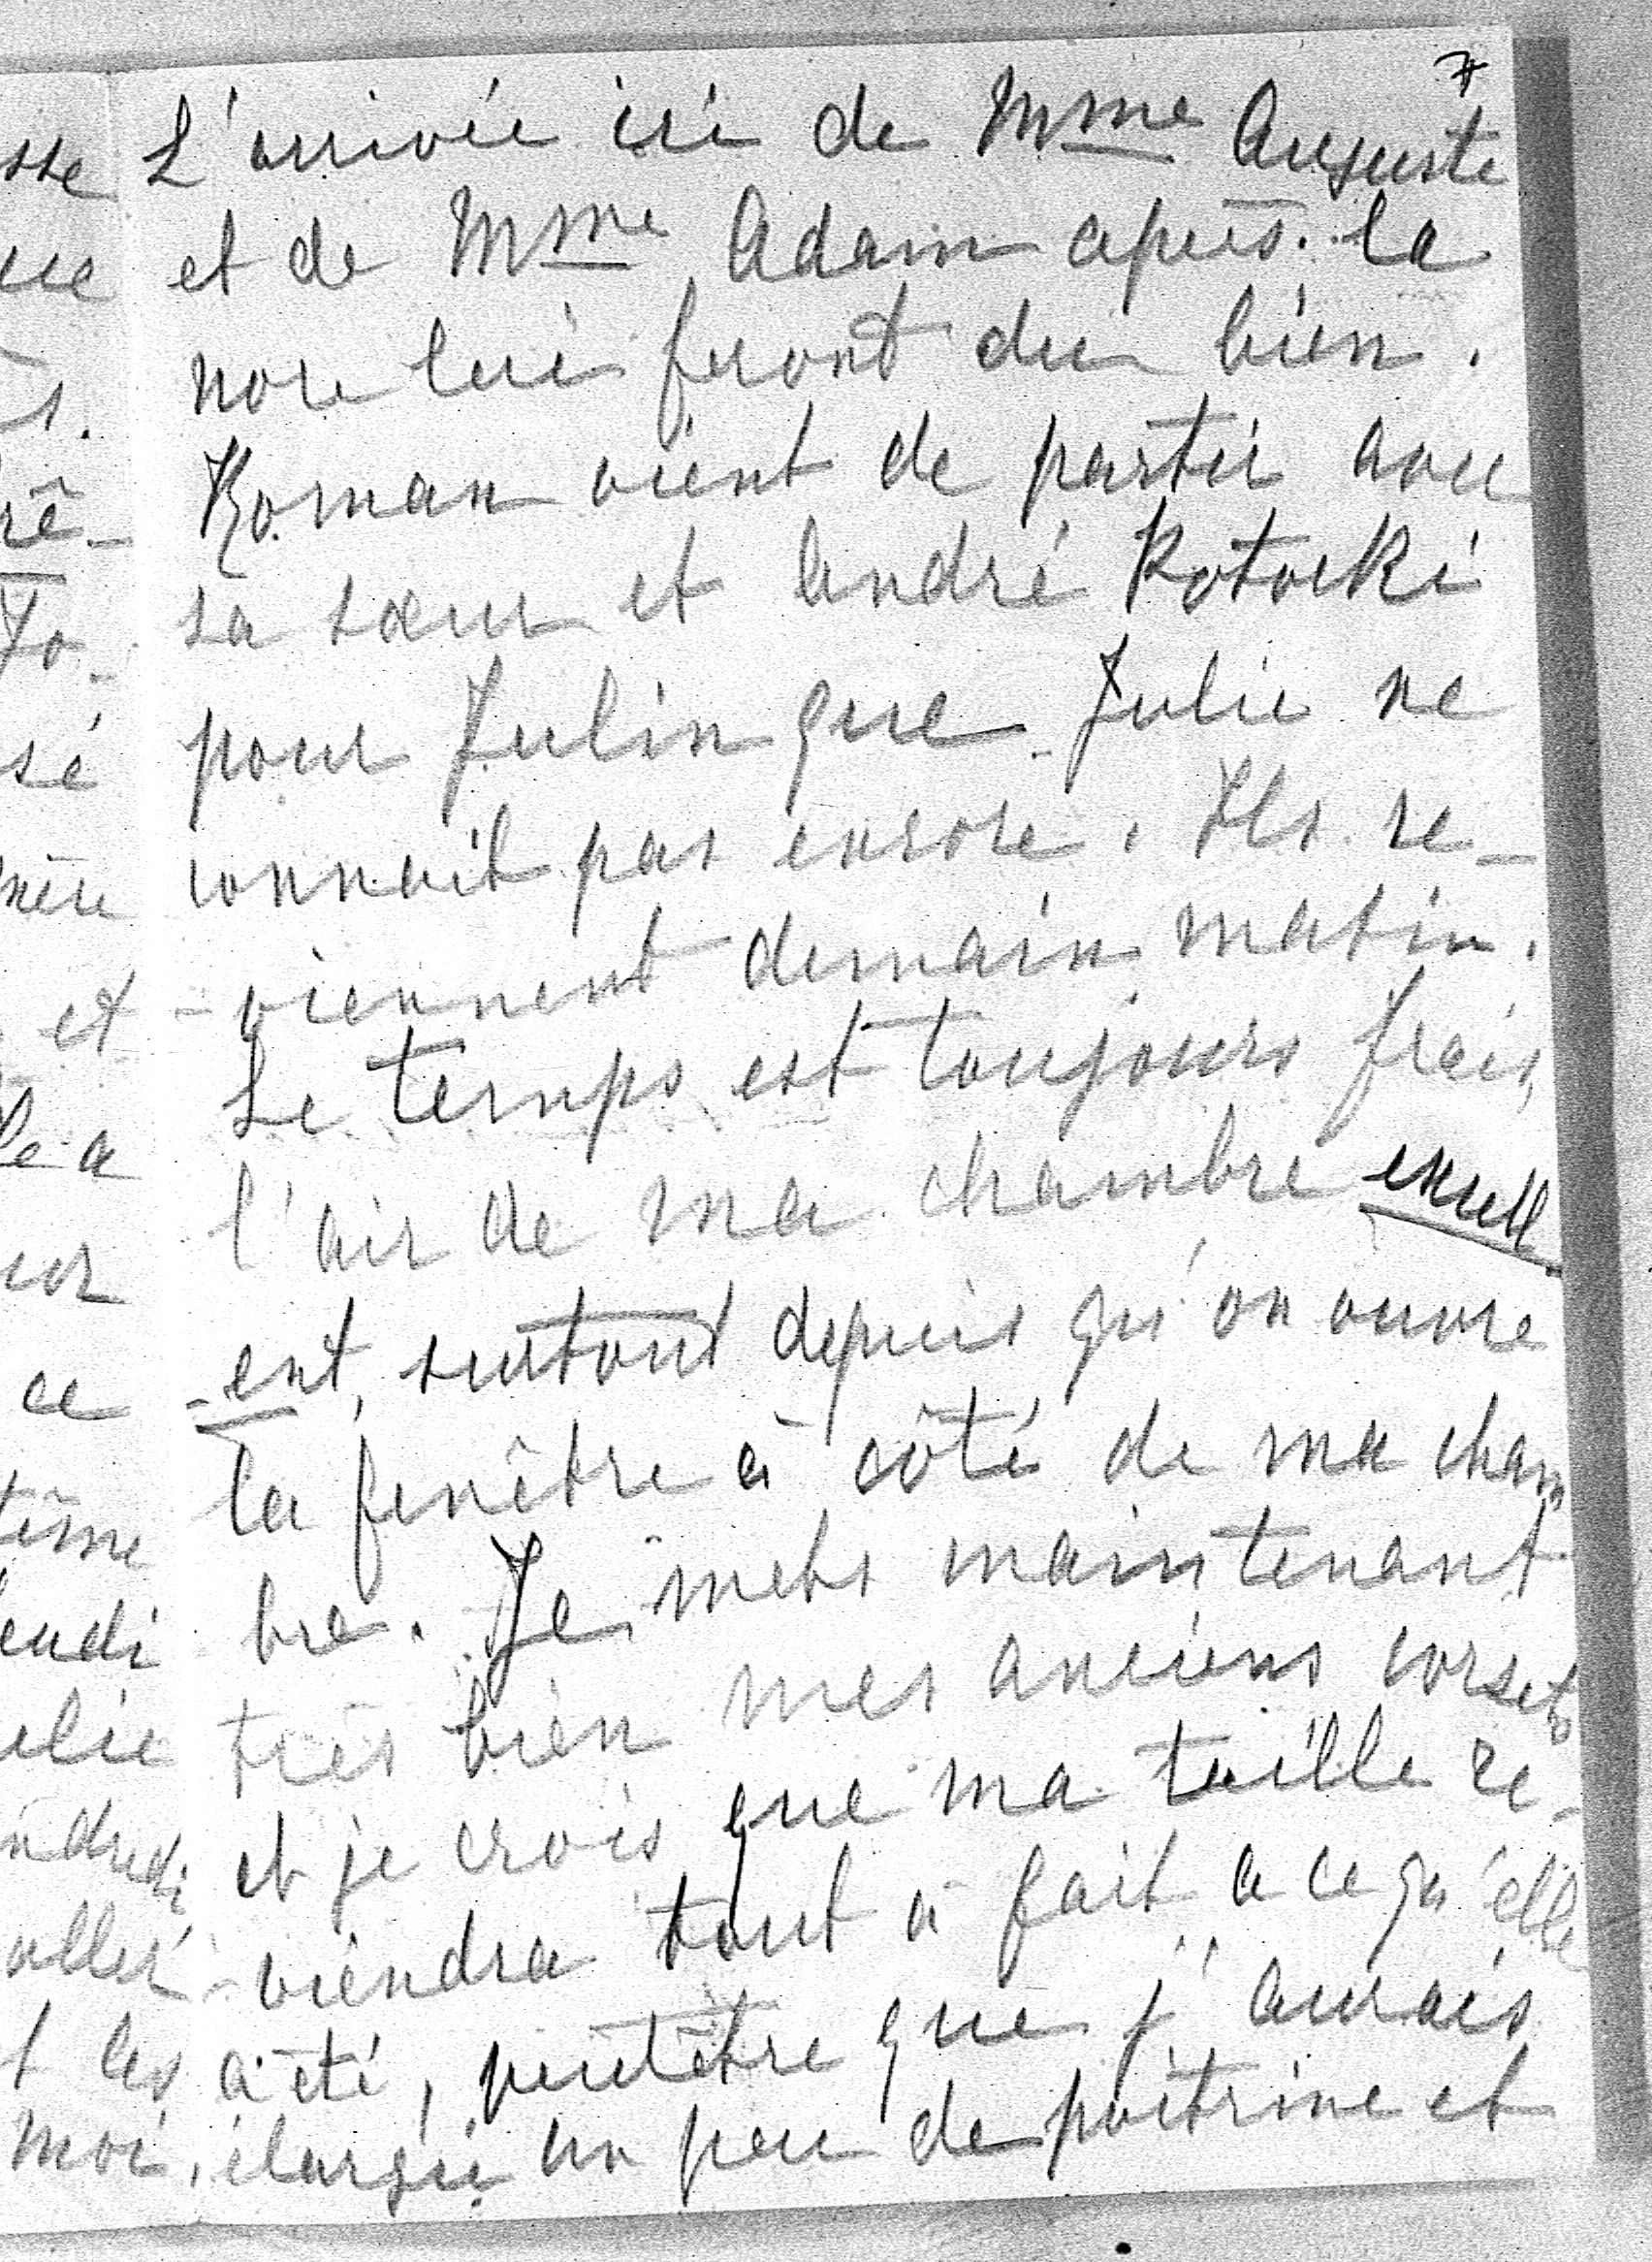 7
L'arrivée ici de Mme Auguste
et de Mme Adam après la
noce lui feront du bien.
Roman vient de partir avec
sa sœur et André Potocki
pour Julin que Julie ne
connait pas encore. Ils re-
-viennent demain matin.
Le temps est toujours frais,
l'air de ma chambre excell
-ent, surtout depuis qu'on ouvre
la fenêtre à côté de ma cham
bre. Je mets maintenant
très bien mes anciens corsets
et je crois que ma taille re-
-viendra tout à fait a ce qu'elle
a été, peutêtre que j'aurais
élargie un peu de poitrine et